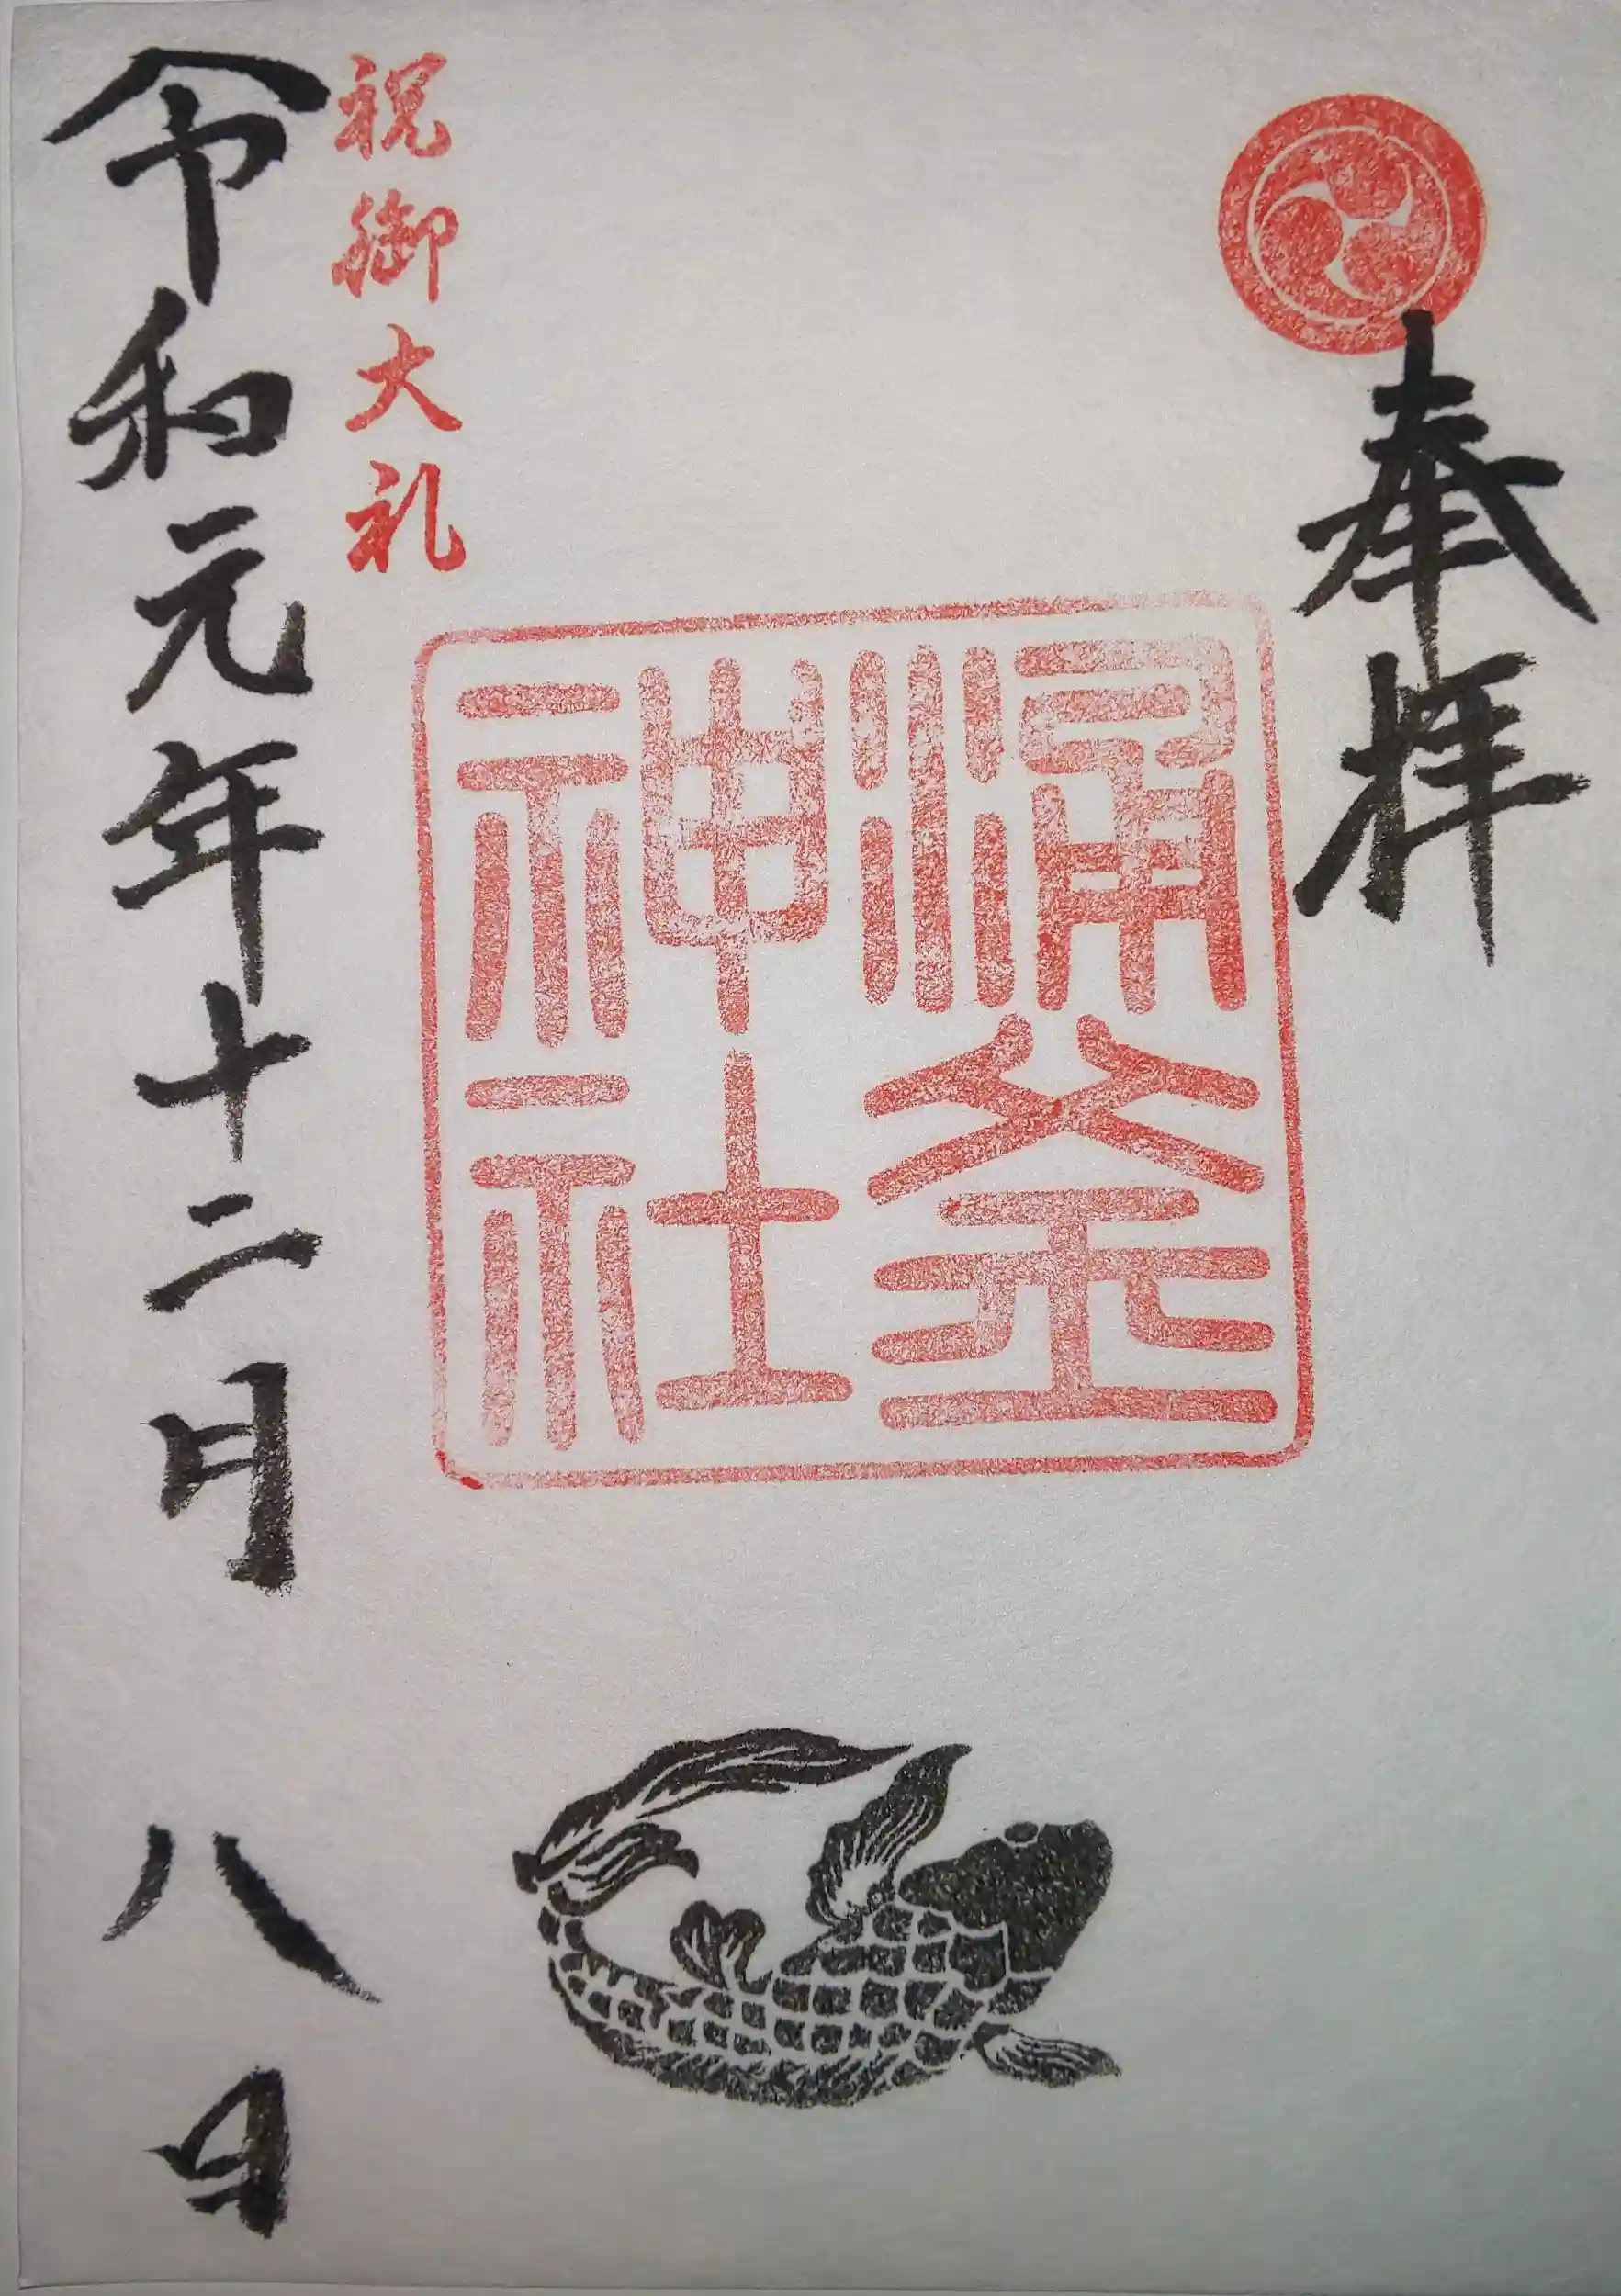 奉拝
湧釜神社
祝御大礼
令和元年十二月八日